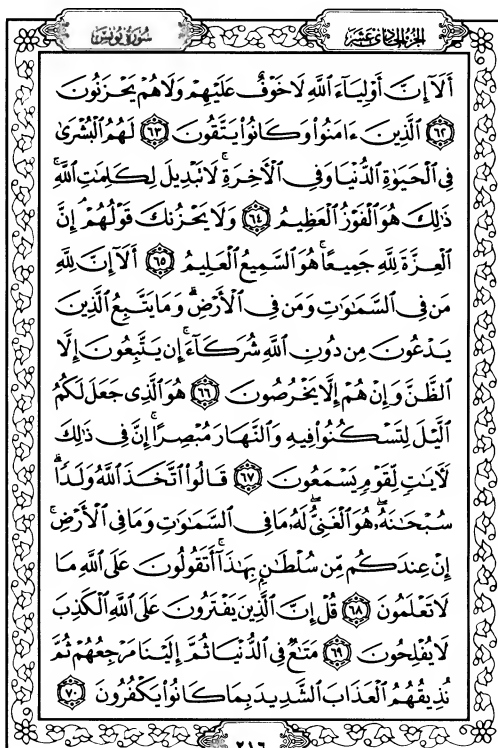 الجزء الحادي عشر
سورة يونس
أَلَآ إِنَّ أَوْلِيَآءَ ٱللَّهِ لَا خَوْفٌ عَلَيْهِمْ وَلَا هُمْ يَحْزَنُونَ
﴿٦٢﴾ ٱلَّذِينَ ءَامَنُوا۟ وَكَانُوا۟ يَتَّقُونَ ﴿٦٣﴾ لَهُمُ ٱلْبُشْرَىٰ
فِى ٱلْحَيَوٰةِ ٱلدُّنْيَا وَفِى ٱلْـَٔاخِرَةِ ۚ لَا تَبْدِيلَ لِكَلِمَـٰتِ ٱللَّهِ ۚ
ذَٰلِكَ هُوَ ٱلْفَوْزُ ٱلْعَظِيمُ ﴿٦٤﴾ وَلَا يَحْزُنكَ قَوْلُهُمْ ۘ إِنَّ
ٱلْعِزَّةَ لِلَّهِ جَمِيعًا ۚ هُوَ ٱلسَّمِيعُ ٱلْعَلِيمُ ﴿٦٥﴾ أَلَآ إِنَّ لِلَّهِ
مَن فِى ٱلسَّمَـٰوَٰتِ وَمَن فِى ٱلْأَرْضِ ۗ وَمَا يَتَّبِعُ ٱلَّذِينَ
يَدْعُونَ مِن دُونِ ٱللَّهِ شُرَكَآءَ ۚ إِن يَتَّبِعُونَ إِلَّا
ٱلظَّنَّ وَإِنْ هُمْ إِلَّا يَخْرُصُونَ ﴿٦٦﴾ هُوَ ٱلَّذِى جَعَلَ لَكُمُ
ٱلَّيْلَ لِتَسْكُنُوا۟ فِيهِ وَٱلنَّهَارَ مُبْصِرًا ۚ إِنَّ فِى ذَٰلِكَ
لَـَٔايَـٰتٍ لِّقَوْمٍ يَسْمَعُونَ ﴿٦٧﴾ قَالُوا۟ ٱتَّخَذَ ٱللَّهُ وَلَدًا ۗ
سُبْحَـٰنَهُۥ ۖ هُوَ ٱلْغَنِىُّ ۖ لَهُۥ مَا فِى ٱلسَّمَـٰوَٰتِ وَمَا فِى ٱلْأَرْضِ ۚ
إِنْ عِندَكُم مِّن سُلْطَـٰنٍۭ بِهَـٰذَآ ۚ أَتَقُولُونَ عَلَى ٱللَّهِ مَا
لَا تَعْلَمُونَ ﴿٦٨﴾ قُلْ إِنَّ ٱلَّذِينَ يَفْتَرُونَ عَلَى ٱللَّهِ ٱلْكَذِبَ
لَا يُفْلِحُونَ ﴿٦٩﴾ مَتَـٰعٌ فِى ٱلدُّنْيَا ثُمَّ إِلَيْنَا مَرْجِعُهُمْ ثُمَّ
نُذِيقُهُمُ ٱلْعَذَابَ ٱلشَّدِيدَ بِمَا كَانُوا۟ يَكْفُرُونَ ﴿٧٠﴾
٢١٦